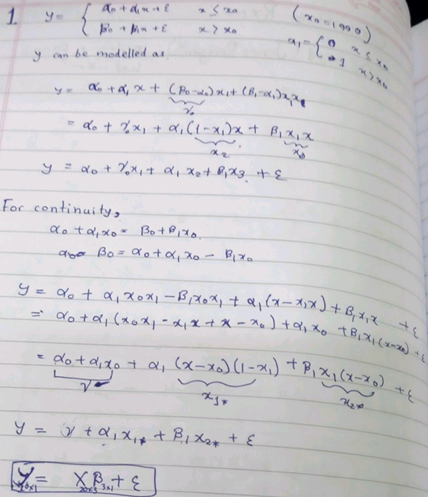 1 y = { α₀ + α₁x + ε x ≤ x₀ (x₀ = 1990)
β₀ + β₁x + ε x > x₀ x₁ = { 0 x ≤ x₀
1 x > x₀
y can be modelled as
y = α₀ + α₁x + (β₀-α₀)x₁ + (β₁-α₁)x₁x
γ₀
= α₀ + γ₀x₁ + α₁(1-x₁)x + β₁x₁x
x₂ x₃
y = α₀ + γ₀x₁ + α₁x₂ + β₁x₃ + ε
For continuity,
α₀ + α₁x₀ = β₀ + β₁x₀
β₀ = α₀ + α₁x₀ - β₁x₀
y = α₀ + α₁x₀x₁ - β₁x₀x₁ + α₁(x-x₁x) + β₁x₁x + ε
= α₀ + α₁(x₀x₁ - x₁x + x - x₀) + α₁x₀ + β₁x₁(x-x₀) + ε
= α₀ + α₁x₀ + α₁(x-x₀)(1-x₁) + β₁x₁(x-x₀) + ε
γ x₁* x₂*
y = γ + α₁x₁* + β₁x₂* + ε
y = Xβ + ε
3x1